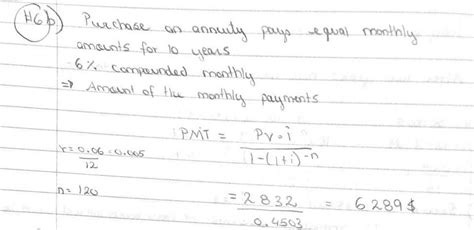 H6 b) Purchase an annuity pays equal monthly
amounts for 10 years
6% compounded monthly
⇒ Amount of the monthly payments
PMT = PV.i / 1-(1+i)^-n
r = 0.06 = 0.005
12
n = 120
= 2832 / 0.4503 = 6289$